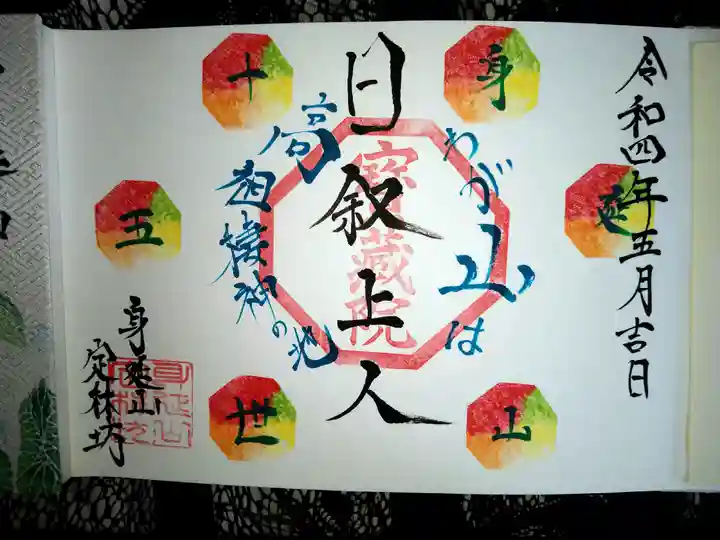 令和四年五月吉日
身
延
山
わが山は
日叙上人
宝蔵院
高祖棲神の地
十
五
世
身延山
定林坊